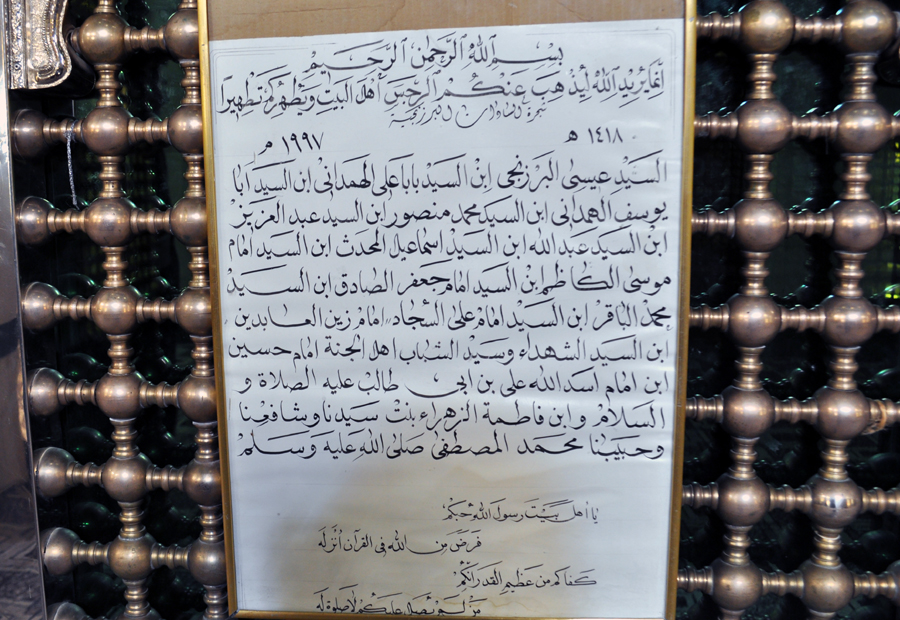 بسم الله الرحمن الرحيم
انما يريد الله ليذهب عنكم الرجس اهل البيت ويطهركم تطهيرا
شجرة السادات البرزنجية
١٤١٨ هـ ١٩٩٧ م
السيد عيسى البرزنجي ابن السيد بابا علي الهمداني ابن السيد ابا
يوسف الهمداني ابن السيد محمد منصور ابن السيد عبد العزيز
ابن السيد عبد الله ابن السيد اسماعيل المحدث ابن السيد امام
موسى الكاظم ابن السيد امام جعفر الصادق ابن السيد
محمد الباقر ابن السيد امام علي السجاد امام زين العابدين
ابن السيد الشهداء وسيد الشباب اهل الجنة امام حسين
ابن الامام اسد الله علي بن ابي طالب عليه الصلاة و
السلام وابن فاطمة الزهراء بنت سيدنا وشافعنا
وحبيبنا محمد المصطفى صلى الله عليه وسلم
يا اهل بيت رسول الله حبكم
فرض من الله في القرآن أنزله
كفاكم من عظيم القدر انكم
من لم يصل عليكم لا صلوة له